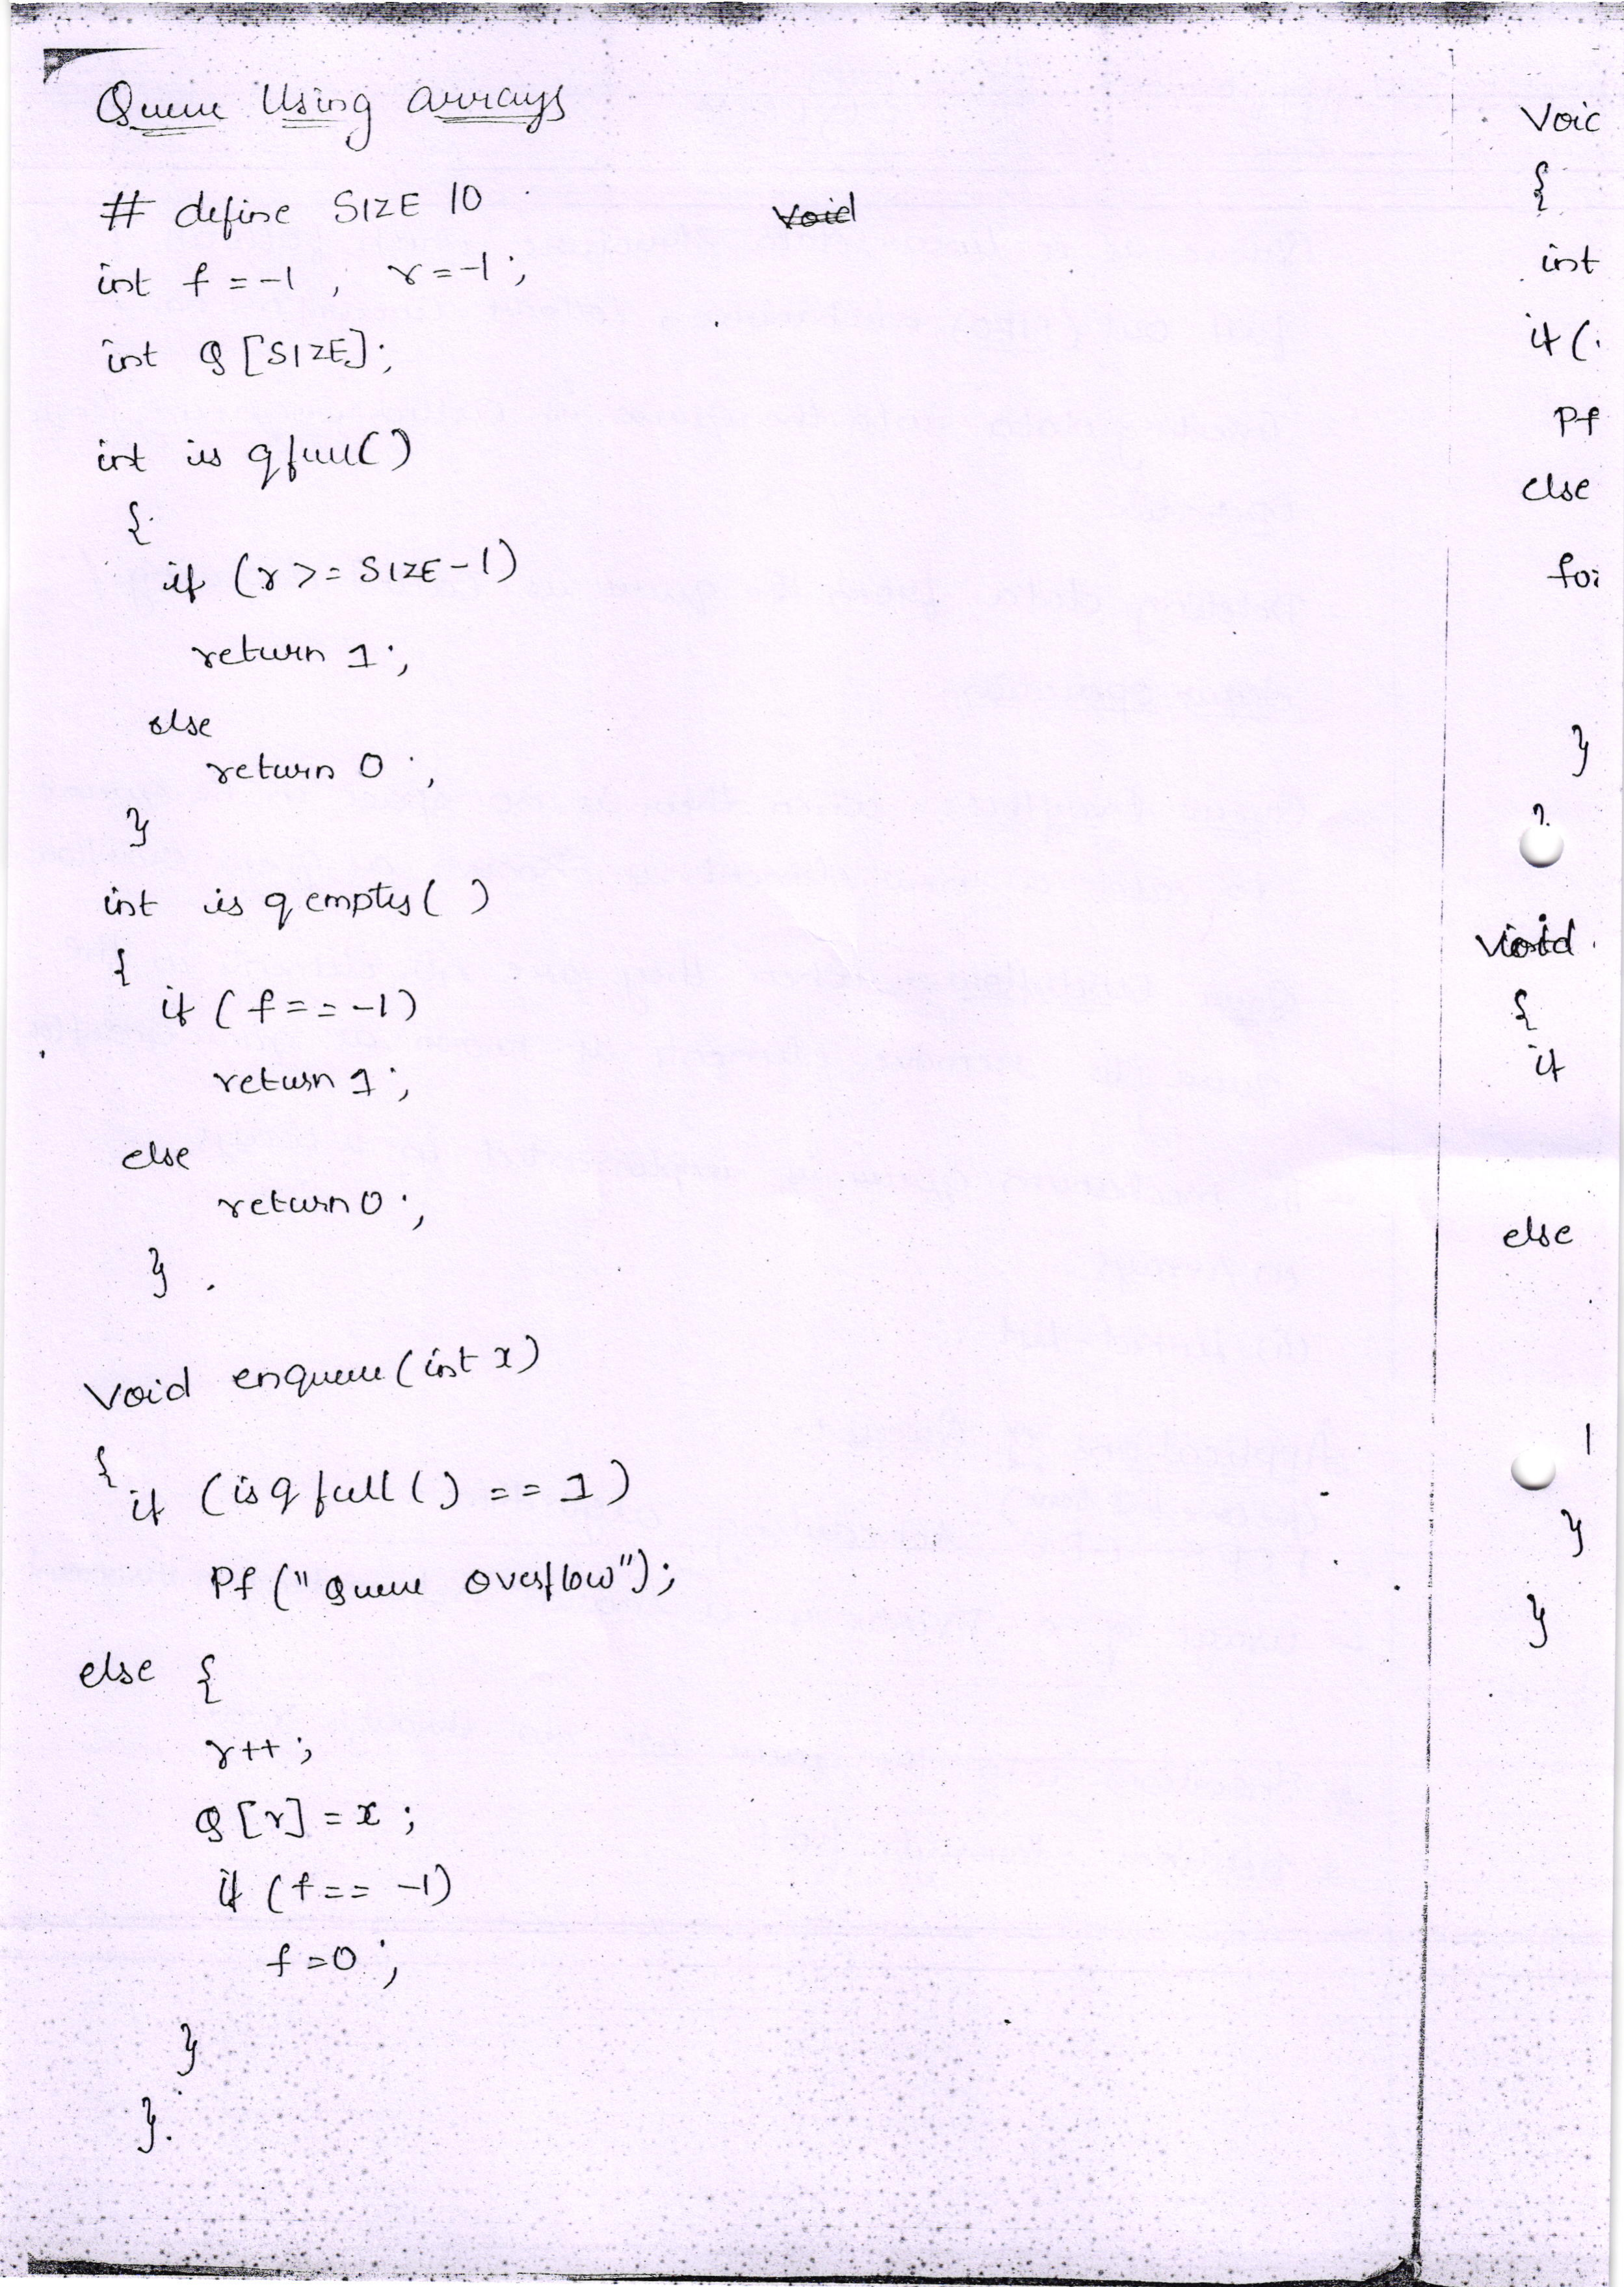 Queue Using arrays
# define SIZE 10
void
int f = -1 , r = -1 ;
int Q [SIZE];
int is qfull()
{
if (r >= SIZE-1)
return 1 ;
else
return 0 ;
}
int is q empty( )
{
if ( f == -1)
return 1 ;
else
return 0 ;
}
void enqueue (int x)
{
if (is q full () == 1 )
Pf (" Queue overflow");
else {
r++ ;
Q [r] = x ;
if (f == -1)
f = 0 ;
}
}
{
int
if (
Pf
else
}
void
{
if
else
}
}